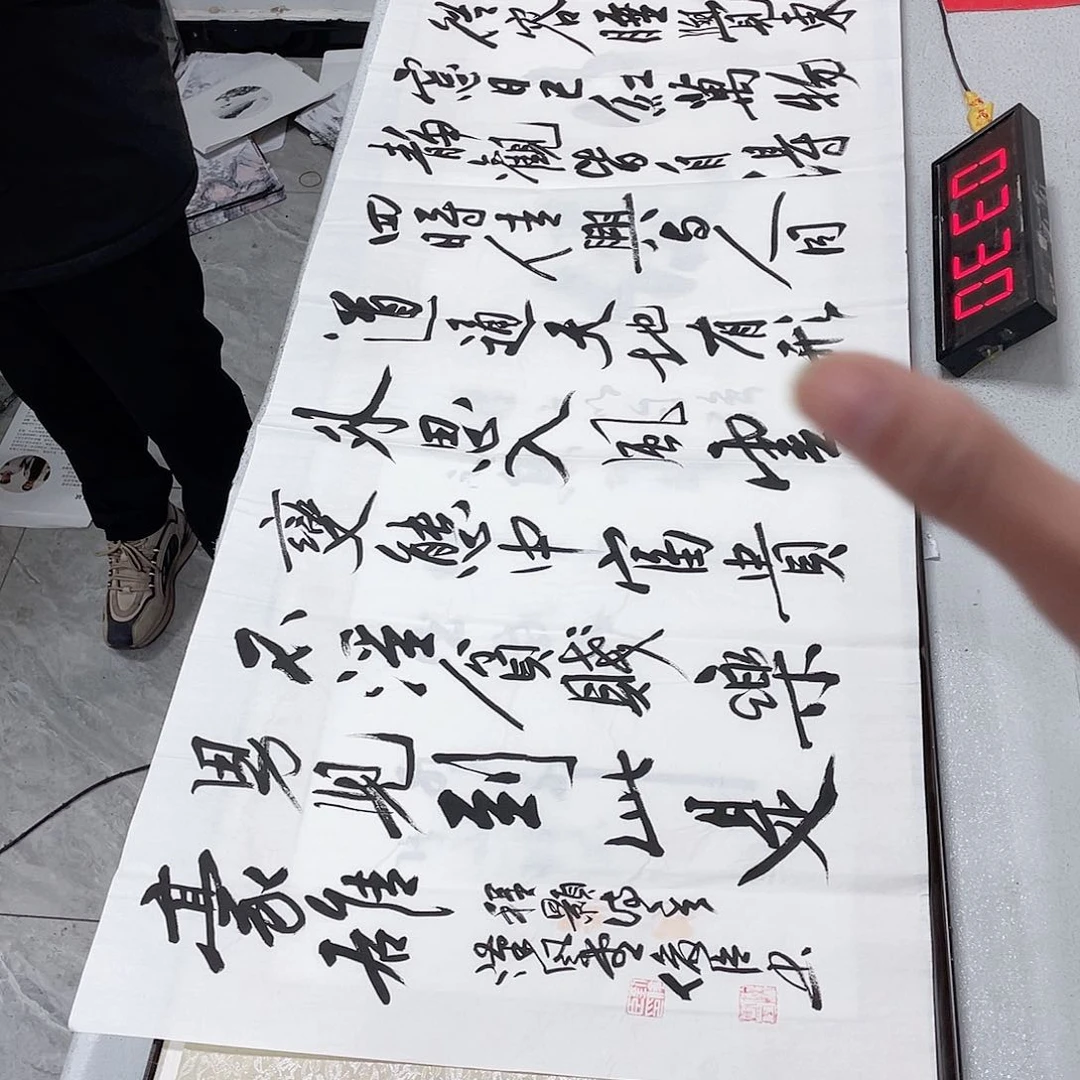 從容睡覺東
窗日已紅萬物
靜觀皆自得
四時佳興與人同
道通天地有形
外思入風雲
變態中富貴
不淫貧賤樂
男兒到此是
豪雄
程顥
0330